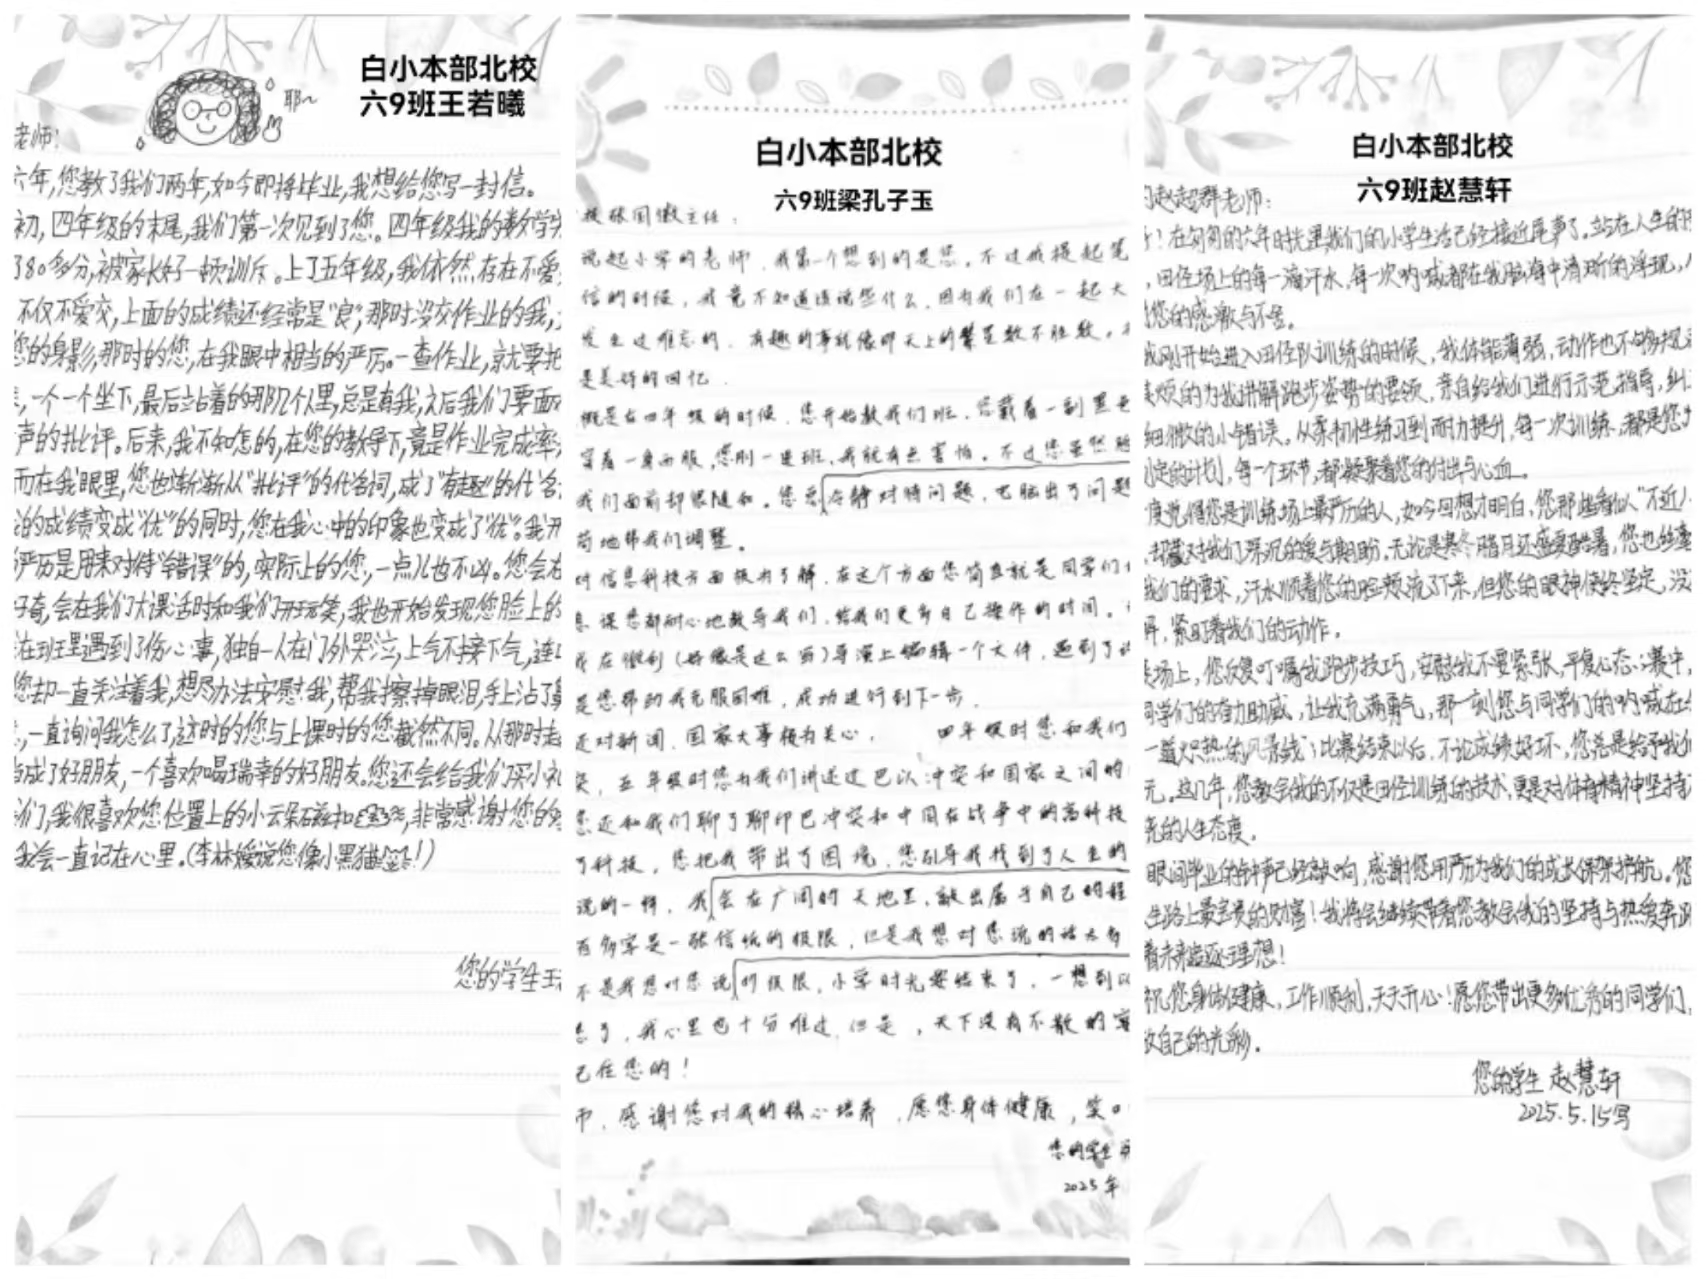 白小本部北校
六9班王若曦
耶~
老师:
六年,您教了我们两年,如今即将毕业,我想给您写一封信。
初,四年级的末尾,我们第一次见到了您。四年级我的数学
了80多分,被家长好一顿训斥。上了五年级,我依然存在不爱
不仅不爱交,上面的成绩还经常是“良”,那时没交作业的我,
您的身影,那时的您,在我眼中相当的严厉。一查作业,就要
,一个一个坐下,最后站着的那几个人里,总是有我,之后我们要面
声的批评。后来,我不知怎的,在您的教导下,竟是作业完成率
而在我眼里,您也渐渐从“批评”的代名词,成了“有趣”的代名
的成绩变成“优”的同时,您在我心中的印象也变成了“优”。我开
严厉是用来对待“错误”的,实际上的您,一点儿也不凶。您会在
好奇,会在我们大课活时和我们开玩笑,我也开始发现您脸上的
在班里遇到了伤心事,独自一人在门外哭泣,上气不接下气,连
您却一直关注着我,想尽办法安慰我,帮我擦掉眼泪,手上沾了
,一直询问我怎么了,这时的您与上课时的您截然不同。从那时
成了好朋友,一个喜欢喝瑞幸的好朋友。您还会给我们买小礼
们,我很喜欢您位置上的小云朵磁扣,非常感谢您的
我会一直记在心里。(李林媛说您像小黑猫!)
您的学生王
白小本部北校
六9班梁孔子玉
张国徽主任:
说起小学的老师,我第一个想到的是您。不过我提起笔
信的时候,我竟不知道该说些什么,因为我们在一起大
发生过难忘的、有趣的事就像那天上的繁星数不胜数。
是美好的回忆.
概是在四年级的时候,您开始教我们班,您戴着一副黑色
穿着一身西服,您刚一进班,我就有点害怕。不过您虽然
我们面前却很随和。您会冷静对待问题,电脑出了问题
地帮我们调整。
对信息科技方面极为了解,在这个方面您简直就是同学们
息课您都耐心地教导我们,给我们更多自己操作的时间。
我在慨刻(好像是这么写)导演上编辑一个文件,遇到了
是您帮助我克服困难,成功进行到下一步.
还对新闻、国家大事极为关心, 四年级时您和我们
突,五年级时您为我们讲述过巴以冲突和国家之间的
您还和我们聊了聊印巴冲突和中国在战争中的高科技
了科技,您把我带出了困境,您引导我找到了人生的
说的一样,我会在广阔的天地里,敲出属于自己的程
百多字是一张信纸的极限,但是我想对您说的话
不是我想对您说的极限,小学时光要结束了,一想到
您了,我心里也十分难过,但是,天下没有不散的宴
记住您的!
师,感谢您对我的精心培养,愿您身体健康,笑口
您的学生
2025年
白小本部北校
六9班赵慧轩
的赵超群老师:
!在匆匆的六年时光里我们的小学生活已经接近尾声了。站在人生的
,田径场上的每一滴汗水、每一次呐喊都在我脑海中清晰的浮现,
您的感激与不舍。
我刚开始进入田径队训练的时候,我体能薄弱,动作也不够规
烦的为我讲解跑步姿势的要领,亲自给我们进行示范指导,纠
细微的小错误。从柔韧性练习到耐力提升,每一次训练,都是您
定的计划,每一个环节,都凝聚着您的付出与心血。
度觉得您是训练场上最严厉的人,如今回想才明白,您那些看似“不近人
却藏对我们深沉的爱与期盼。无论是寒冬腊月还盛夏酷暑,您也
我们的要求,汗水顺着您的脸颊流了下来,但您的眼神使终坚定,没
,紧盯着我们的动作。
赛场上,您反复叮嘱我跑步技巧,安慰我不要紧张,平复心态;赛中,
同学们的奋力助威,让我充满勇气,那一刻您与同学们的呐喊在
一道炽热的风景线;比赛结束以后,不论成绩好坏,您总是给予我们
。这几年,您教会我的不仅是田径训练的技术,更是对体育精神坚持
的人生态度。
眼间毕业的钟声已经敲响,感谢您用严厉为我们的成长保架护航。您
生路上最宝贵的财富!我将会继续带着您教会我的坚持与热爱奔
着未来追逐理想!
祝您身体健康,工作顺利,天天开心!愿您带出更多优秀的同学们,
放自己的光彩。
您的学生 赵慧轩
2025.5.15写